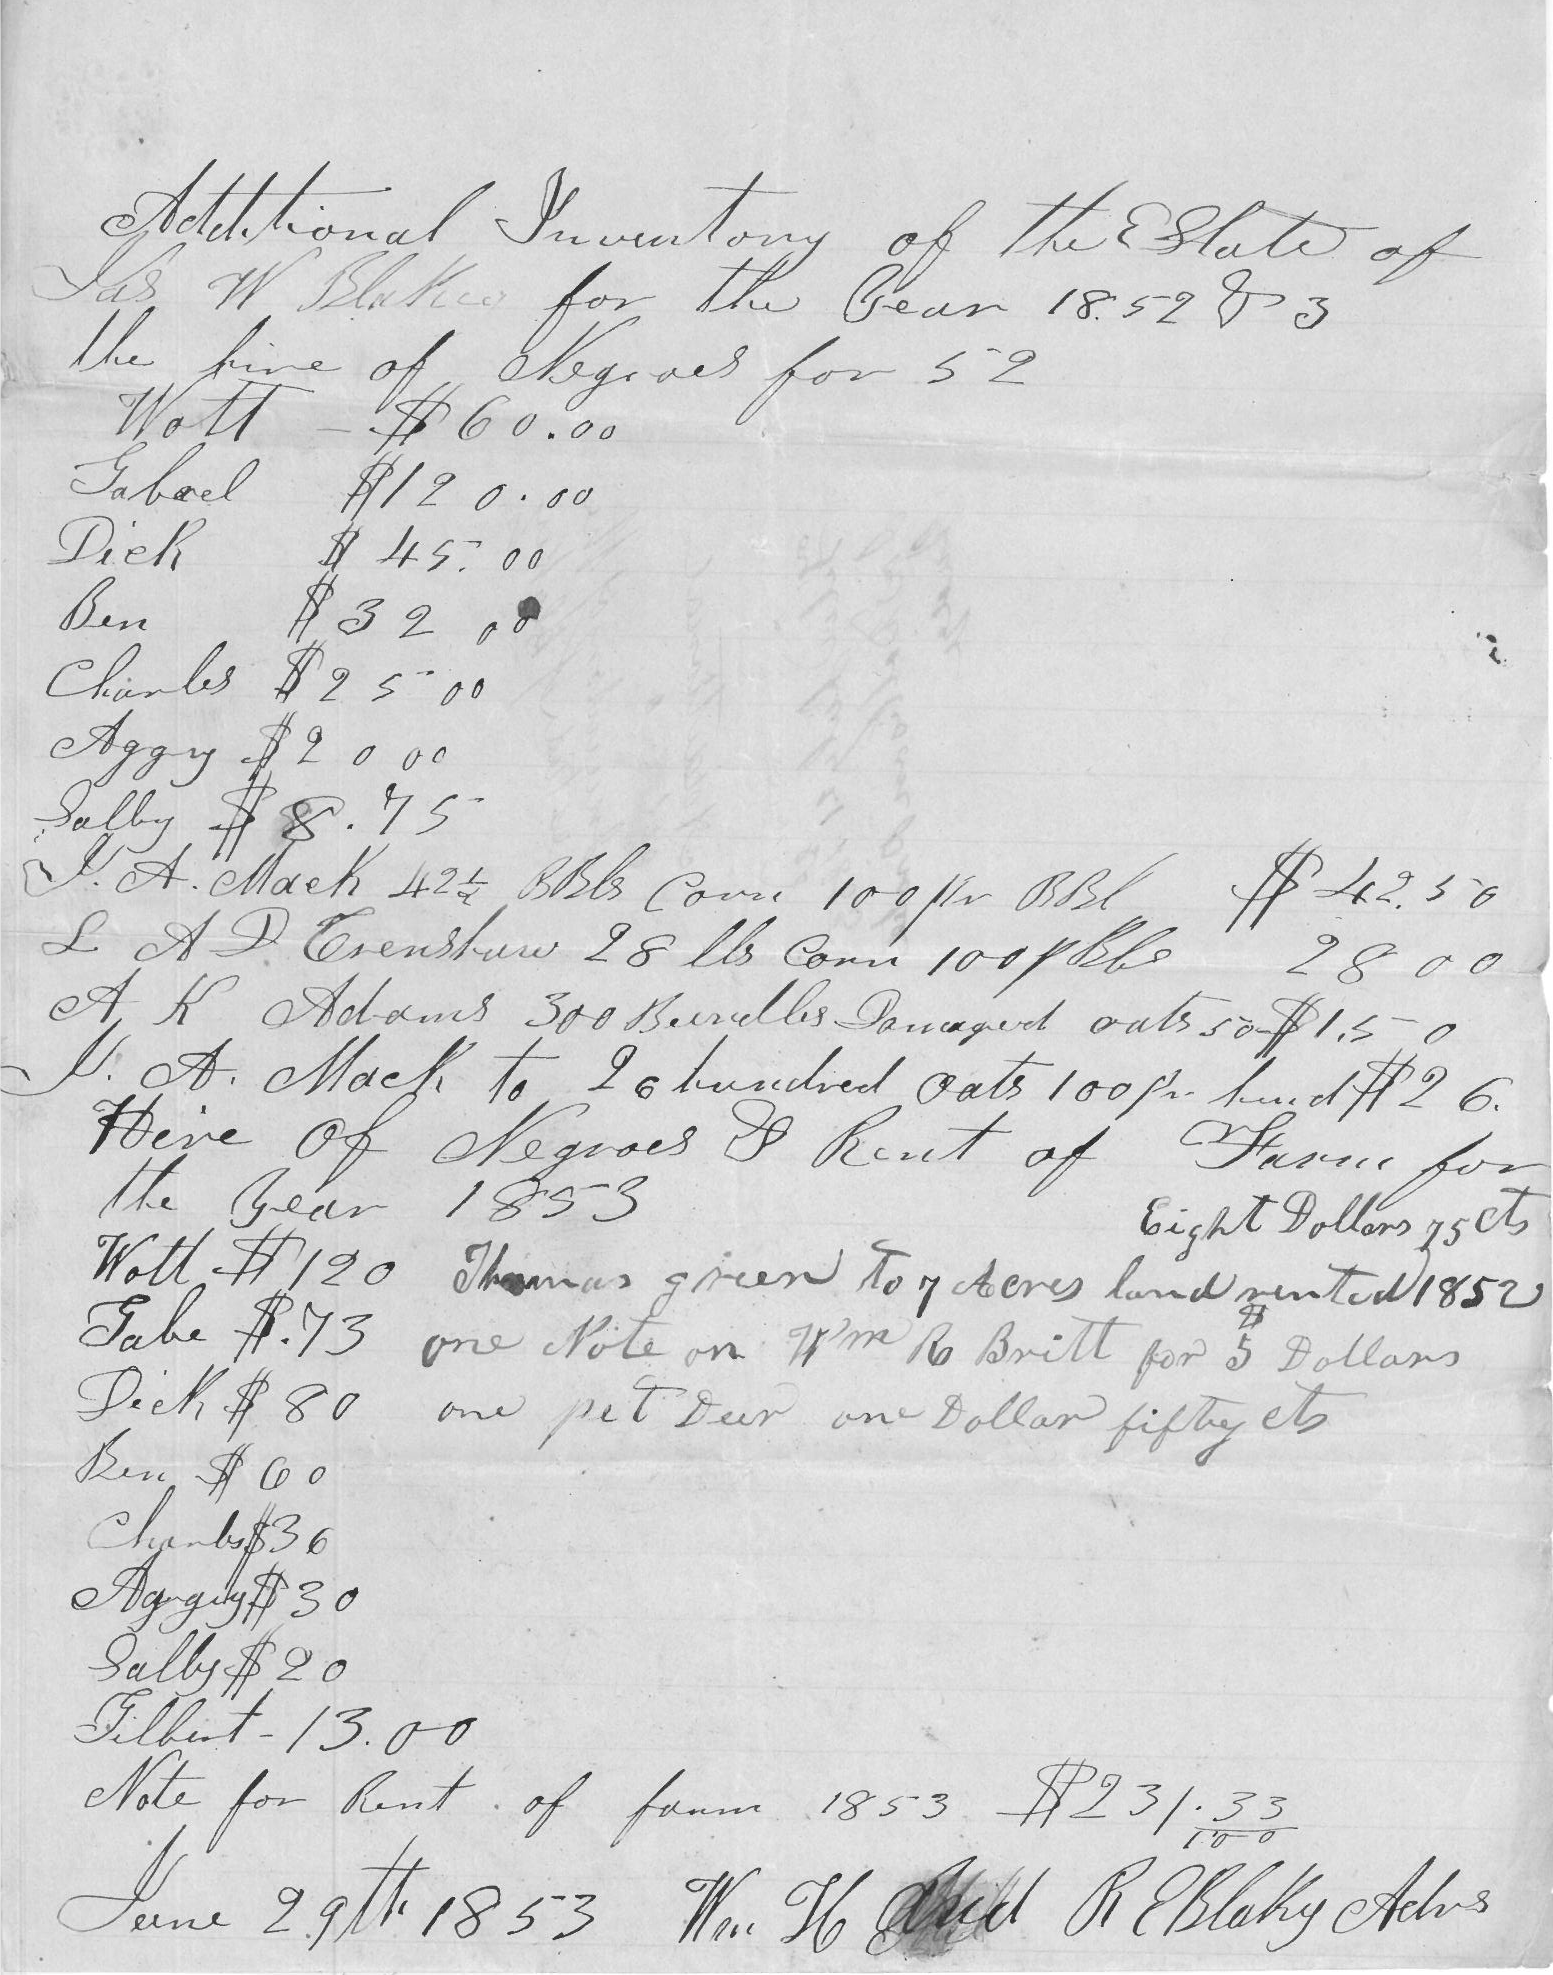 Additional Inventory of the EState of
Jas W Blakey for the Year 18.52 & 3
the hire of Negroes for 52
Wott - $60.00
Gabrel $120.00
Dick $45.00
Ben $32 00
Charles $25 00
Aggy $20 00
Sally $8.75
J. A. Mack 42½ BBls Corn 100 pr BBl $42.50
L A D Crenshaw 28 lls Corn 100 p Bbs 28 00
A K Adams 300 Bundles Damaged oats 50 $1.50
J. A. Mack to 26 hundred oats 100 pr hund $26.
Hire Of Negroes & Rent of Farm for
the Year 1853
Eight Dollars 75 cts
Wott $120 Thomas green to 7 Acres land rented 1852
Gabe $.73 one Note on Wm R Britt for $5 Dollars
Dick $80 one pet Deer one Dollar fifty cts
Ben $60
Charles $36
Aggy $30
Sally $20
Gilbert - 13.00
Note for Rent of farm 1853 $231.33/100
June 29th 1853 Wm H R E Blaky Adrs